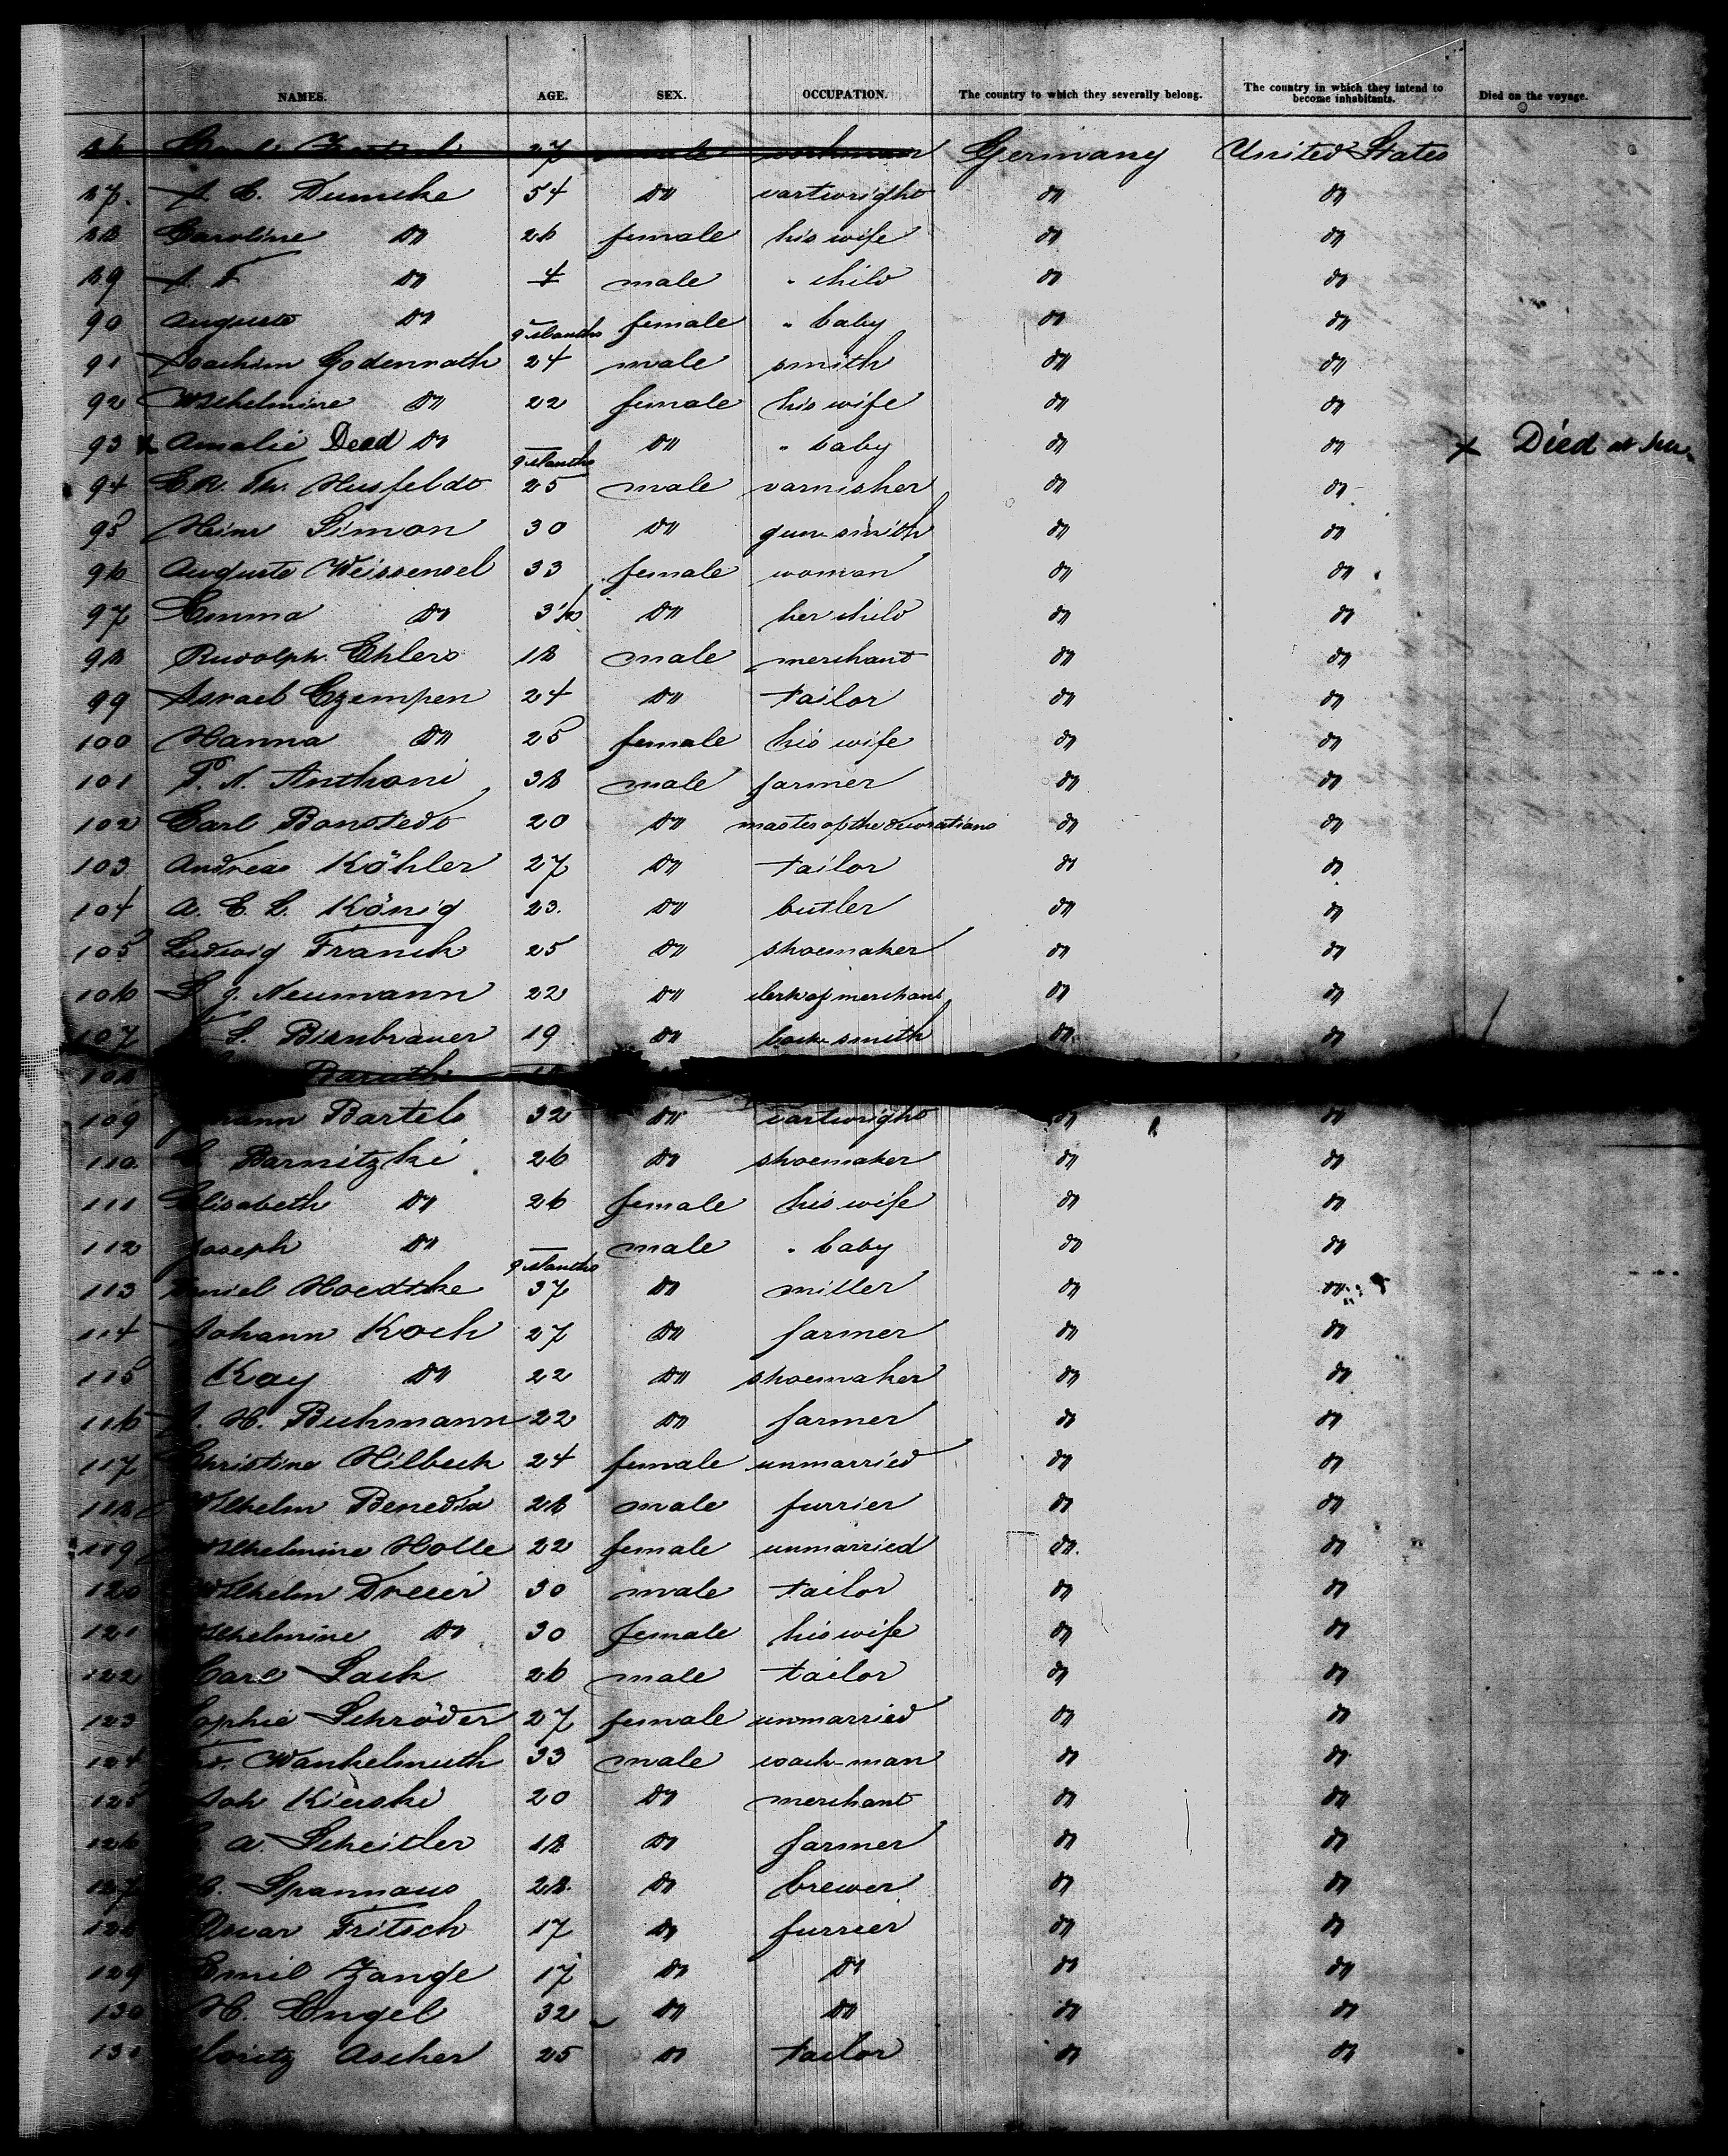 NAMES. AGE. SEX. OCCUPATION. The country to which they severally belong. The country in which they intend to become inhabitants. Died on the voyage.
86 27 male workman Germany United States
87. A. C. Dumcke 54 do cartwright do do
88 Caroline do 26 female his wife do do
89 A. F. do 4 male " child do do
90 Auguste do 9 Months female " baby do do
91 Joachim Godenrath 24 male smith do do
92 Wilhelmine do 22 female his wife do do
93 x Amalie Dead do 9 Months do " baby do do x Died at Sea.
94 Th. Husfeldt 25 male varnisher do do
95 Heinr Simon 30 do gun smith do do
96 Auguste Weissensel 33 female woman do do
97 Emma do 3 1/2 do her child do do
98 Rudolph Ehlers 18 male merchant do do
99 Israel Czempen 24 do tailor do do
100 Hanna do 25 female his wife do do
101 P. N. Anthoni 38 male farmer do do
102 Carl Bonstedt 20 do master of the decorations do do
103 Andreas Köhler 27 do tailor do do
104 A. E. L. König 23. do butler do do
105 Ludwig Franck 25 do shoemaker do do
106 J. Neumann 22 do clerk of merchant do do
107 L. Birnbrauer 19 do lock smith do do
108 Barath
109 Johann Bartels 32 do cartwright do do
110. Barnitzki 26 do shoemaker do do
111 Elisabeth do 26 female his wife do do
112 Joseph do 9 Months male " baby do do
113 Daniel Hoedtke 37 do miller do do
114 Johann Koch 27 do farmer do do
115 Kay do 22 do shoemaker do do
116 J. H. Buhmann 22 do farmer do do
117 Christine Hilbeck 24 female unmarried do do
118 Wilhelm Benedix 28 male furrier do do
119 Wilhelmine Holle 22 female unmarried do. do
120 Wilhelm Dreier 30 male tailor do do
121 Wilhelmine do 30 female his wife do do
122 Carl Sack 26 male tailor do do
123 Sophie Schröder 27 female unmarried do do
124 Fr. Wankelmuth 33 male coach-man do do
125 Joh Kierski 20 do merchant do do
126 A. Scheitler 18 do farmer do do
127 H. Spannaus 28. do brewer do do
128 Oscar Fritsch 17 do furrier do do
129 Emil Zange 17 do do do do
130 H. Engel 32 do do do do
131 Moritz Ascher 25 do tailor do do